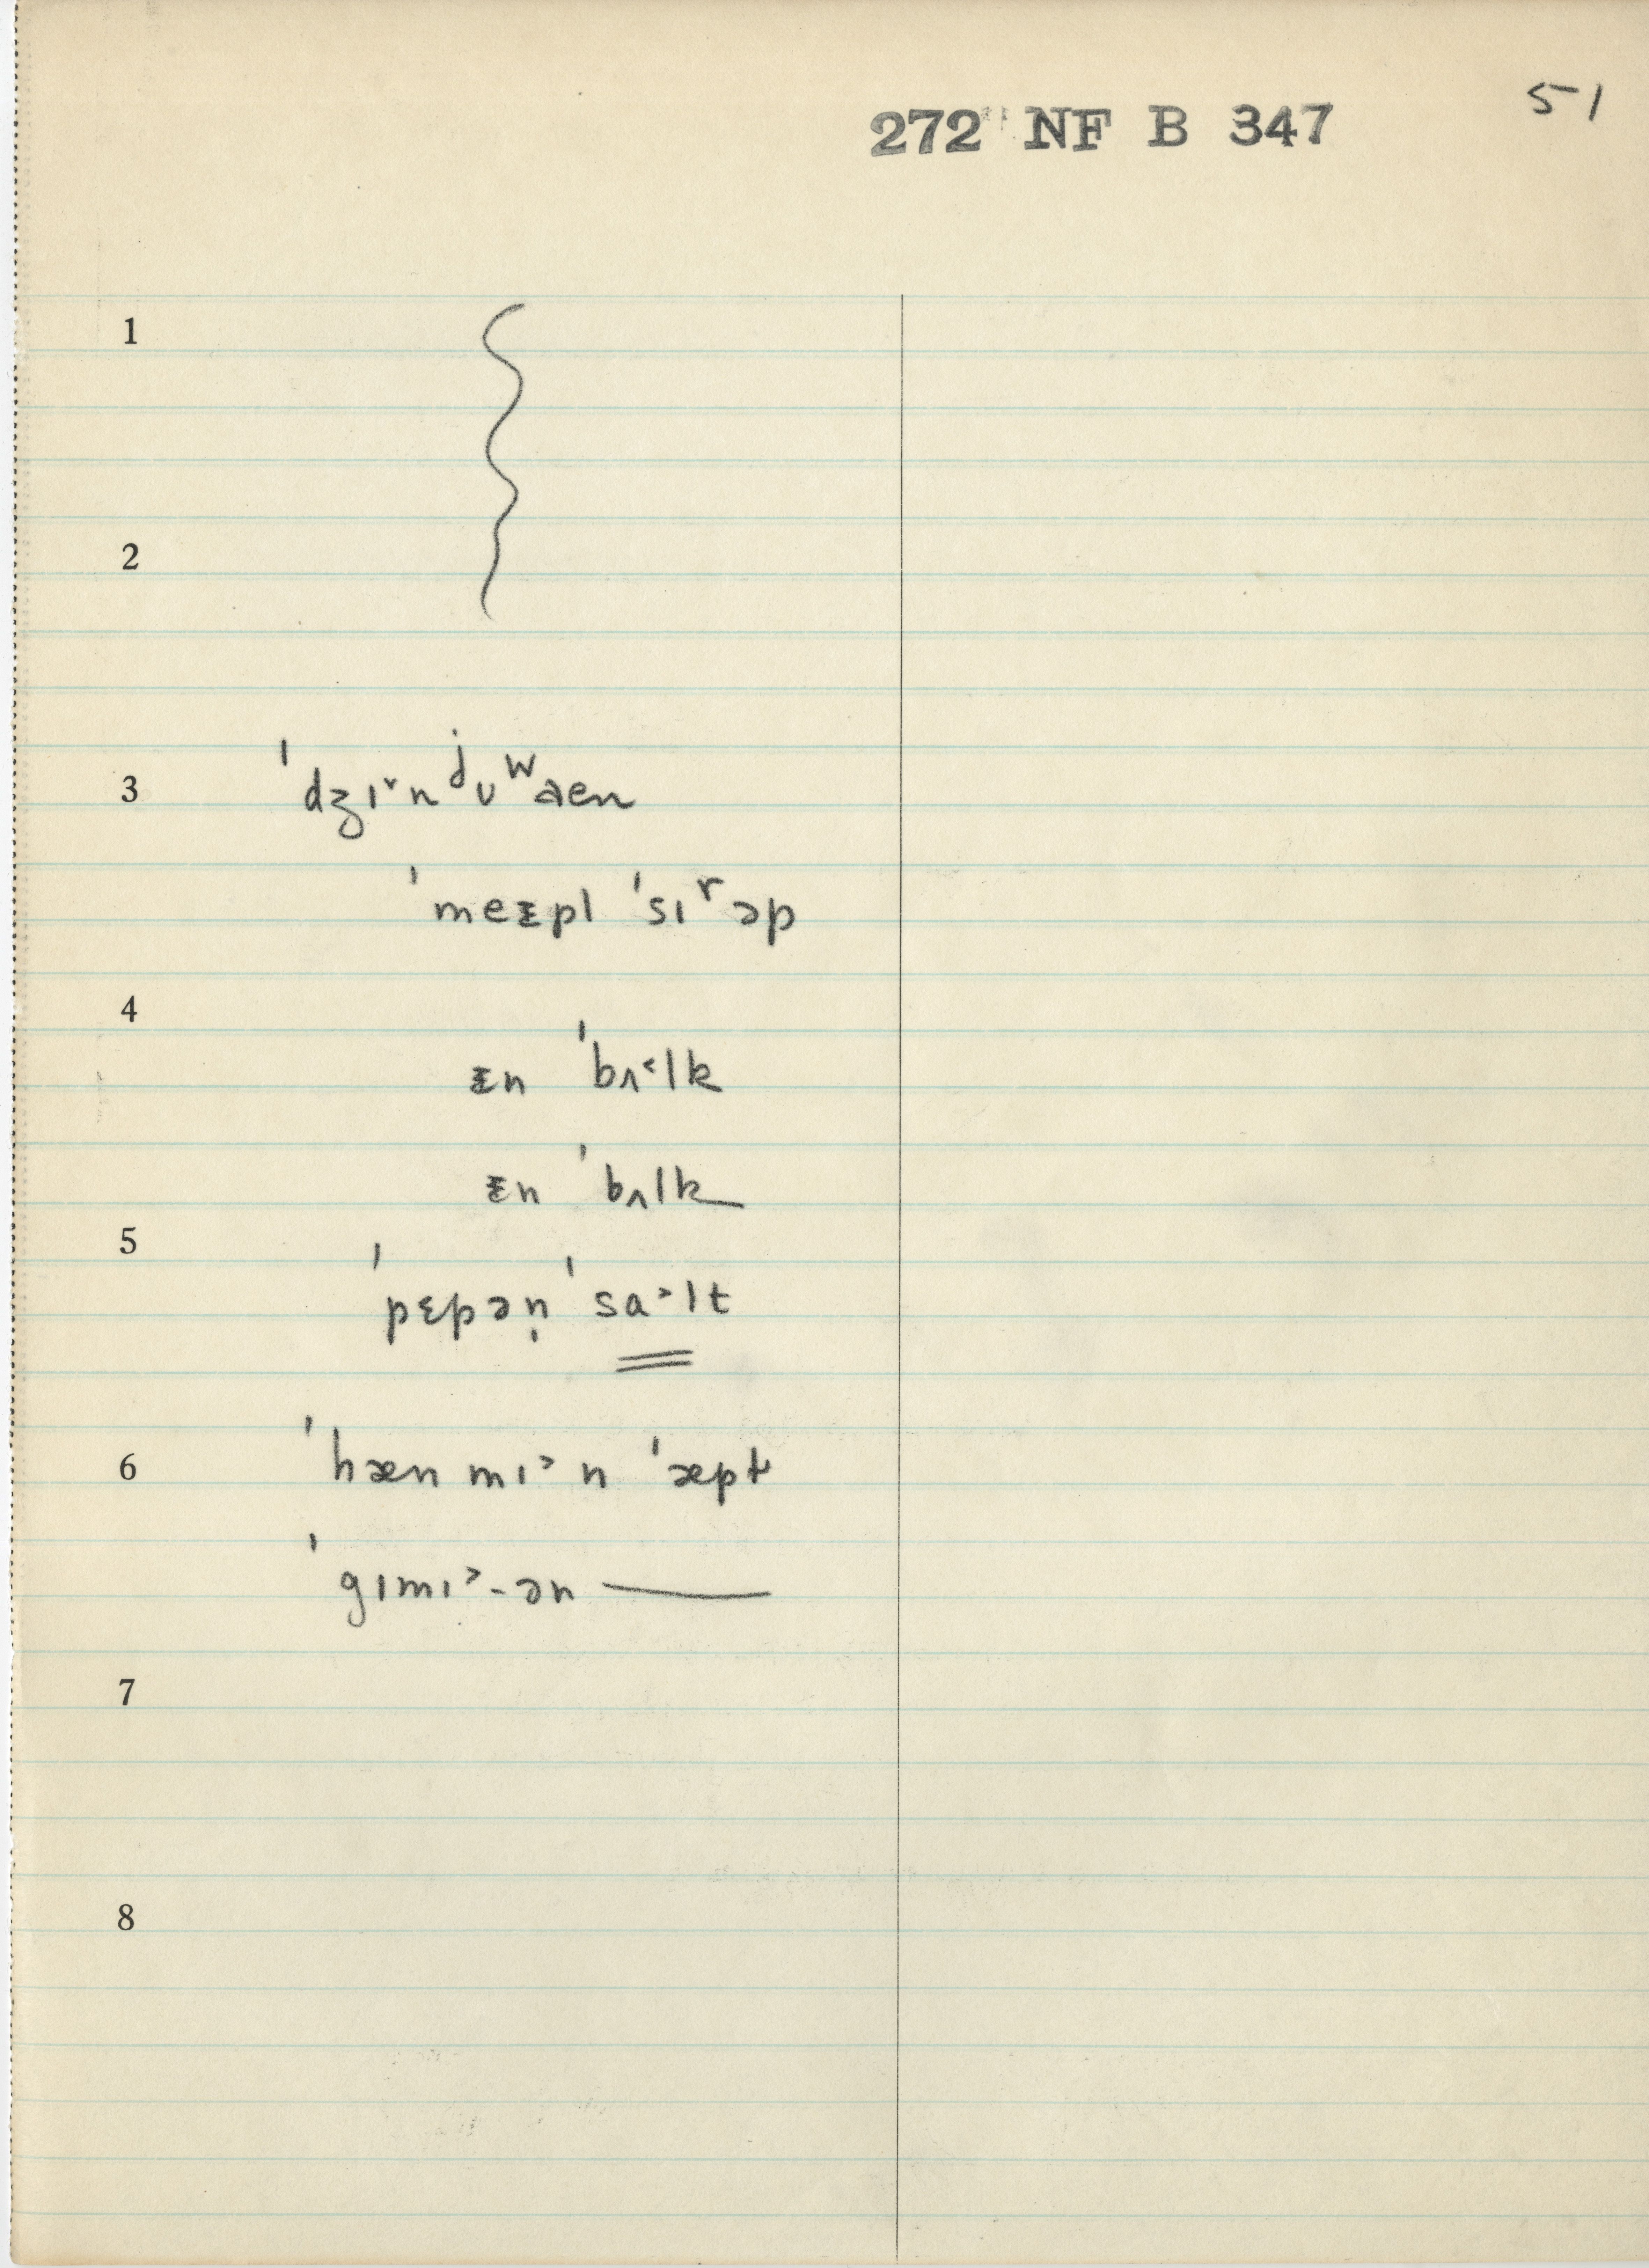 51
272 NF B 347
1
2
3 ˈdʒɪ˅nʲʊʷaen
ˈmeᵻpl ˈsɪʳəp
4
ᵻn ˈbʌ˂lk
ᵻn ˈbʌlk
5
ˈpɛpəṇ ˈsa˃lt
6 ˈhæn mɪ˃ n ˈæpɫ
ˈgɪmɪ˃-ən —
7
8